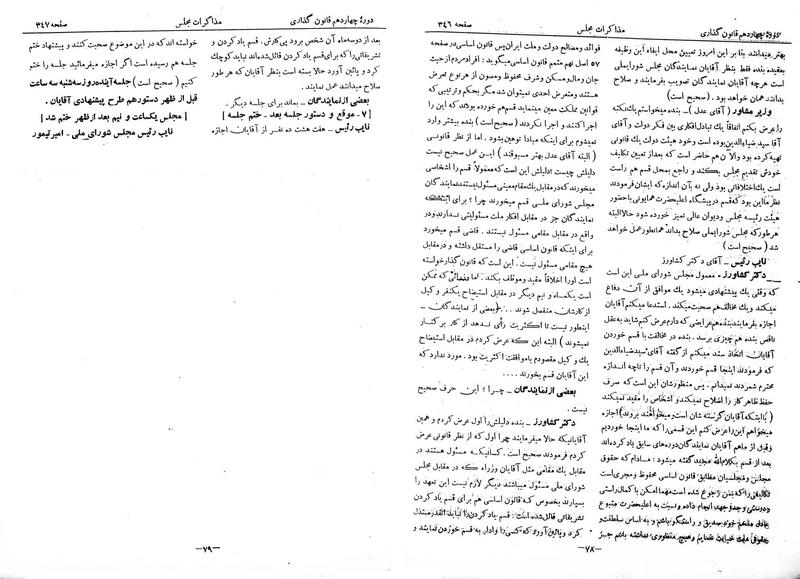 دورهٔ چهاردهم قانون گذاری
مذاکرات مجلس
صفحه ۳۴۶
بهتر میدانند بنا بر این امروز تعیین محل ایفاء این وظیفه
بعقیده بنده فقط بنظر آقایان نمایندگان مجلس شورایملی
است هرچه آقایان نمایندگان تصویب بفرمایند و صلاح
بدانند همان خواهد بود . (صحیح است)
وزیر مشاور (آقای عدل) ـ بنده میخواستم یك نکته
را عرض بکنم اتفاقاً یك تبادل افکاری بین فکر دولت و آقای
آقا سید ضیاءالدین بوده است و خود هیئت دولت یك قانونی
تهیه کرده بود والان هم حاضر است که بعد از تعیین تکلیف
خودش تقدیم مجلس بکند و راجع بمحل قسم هم راست
است یك اختلافاتی بود ولی نه بآن اندازه که ایشان فرمودند
نظر ما این بود که قسم در پیشگاه اعلیحضرت همایونی با حضور
هیئت رئیسه مجلس و دیوان عالی تمیز خورده شود حالا البته
هر طور که مجلس شورایملی صلاح بداند همانطور عمل خواهد
شد (صحیح است)
نایب رئیس ـ آقای دکتر کشاورز
دکتر کشاورز ـ معمول مجلس شورای ملی این است
که وقتی یك پیشنهادی میشود یك موافق از آن دفاع
میکند و یك مخالف هم صحبت میکند . استدعا میکنم آقایان
اجازه بفرمایند بنده هم عرایضی که دارم عرض کنم شاید به عقل
ناقص بنده هم چیزی برسد . بنده در مخالفت با قسم خوردن
آقایان اتخاذ سند میکنم از گفته آقای سید ضیاءالدین
که فرمودند اینجا قسم خوردند و آن قسم را تا چه اندازه
محترم شمردند نمیدانم . پس منظورشان این است که صرف
حفظ ظاهر کار را اصلاح نمیکند و اشخاص را مقید نمیکند
(با اینکه آقایان گرسنه شان است و میخواهند بروند) اجازه
میخواهم این را عرض کنم این قسمی را که ما اینجا خوردیم
و قبل از ما هم آقایان نمایندگان دوره های سابق یاد کرده اند
بعد از قسم بکلام الله مجید گفته میشود : مادام که حقوق
مجلس و مجلسیان مطابق قانون اساسی محفوظ و مجری است
تکالیفی را که بمن رجوع شده است مهما امکن با کمال راستی
و درستی و جد و جهد انجام داده و نسبت به اعلیحضرت متبوع
عادل مفخم خود صدیق و راستگو باشم و به اساس سلطنت و
حقوق ملت خیانت ننمایم و هیچ منظوری نداشته باشم جز
فوائد و مصالح دولت و ملت ایران پس قانون اساسی در صفحه
۵۷ اصل نهم متمم قانون اساسی میگوید : افراد مردم از حیث
جان و مال و مسکن و شرف محفوظ و مصون از هر نوع تعرض
هستند و متعرض احدی نمیتوان شد مگر بحکم و ترتیبی که
قوانین مملکت معین مینماید قسم هم خورده بودند که این را
اجرا کنند و اجرا نکردند (صحیح است) بنده بیشتر وارد
نمیشوم برای اینکه مبادا توهین بشود . اما از نظر قانونی
(البته آقای عدل بهتر مسبوقند) این عمل صحیح نیست
دلیلش چیست دلیلش این است که معمولا قسم را اشخاصی
میخورند که در مقابل یك مقام معینی مسئول نیستند نمایندگان
مجلس شورای ملی قسم میخورند چرا ؟ برای اینکه
نمایندگان جز در مقابل افکار ملت مسئولیتی ندارند و در
واقع در مقابل مقامی مسئول نیستند . قاضی قسم میخورد
برای اینکه قانون اساسی قاضی را مستقل داشته و در مقابل
هیچ مقامی مسئول نیست . این است که قانون گذار خواسته
است او را اخلاقاً مقید و موظف بکند . اما وزرائی که ممکن
است یکماه و نیم دیگر در مقابل استیضاح یکنفر و کیل
از کارشان منفصل شوند ... (بعضی از نمایندگان ـ
اینطور نیست تا اکثریت رأی ندهد از کار بر کنار
نمیشوند) البته این که عرض کردم در مقابل استیضاح
یك و کیل مقصودم با موافقت اکثریت بود . مورد ندارد که
این آقایان قسم بخورند ....
بعضی از نمایندگان ـ چرا ؟ این حرف صحیح
نیست .
دکتر کشاورز ـ بنده دلیلش را اول عرض کردم و همین
آقایانیکه حالا میفرمایند چرا اول که از نظر قانونی عرض
کردم فرمودند صحیح است . کسانیکه مسئول هستند در
مقابل یك مقامی مثل آقایان وزراء که در مقابل مجلس
شورای ملی مسئول میباشند دیگر لازم نیست این تعهد را
بسپارند بخصوص که قانون اساسی هم برای قسم یاد کردن
تشریفاتی قائل شده است : قسم یاد کردن را نباید آنقدر مبتذل
و پائین آورد که کسی را وادار به قسم خوردن نمایند و
ـ۷۸ـ
دورهٔ چهاردهم قانون گذاری
مذاکرات مجلس
صفحه ۳۴۷
بعد از دوسه ماه آن شخص برود پی کارش . قسم یاد کردن و
تشریفاتی را که برای قسم یاد کردن قائل شده اند نباید کوچك
کرد و پائین آورد حالا بسته است بنظر آقایان که هر طور
صلاح میدانند عمل نمایند .
بعضی از نمایندگان ـ بماند برای جلسه دیگر .
[۷ـ موقع و دستور جلسه بعد ـ ختم جلسه]
نایب رئیس ـ هفت هشت ده نفر از آقایان اجازه
خواسته اند که در این موضوع صحبت کنند و پیشنهاد ختم
جلسه هم رسیده است اگر اجازه میفرمائید جلسه را ختم
کنیم (صحیح است) جلسه آینده روز سه شنبه سه ساعت
قبل از ظهر دستور هم طرح پیشنهادی آقایان .
[مجلس یکساعت و نیم بعد از ظهر ختم شد]
نایب رئیس مجلس شورای ملی ـ امیر تیمور
ـ۷۹ـ